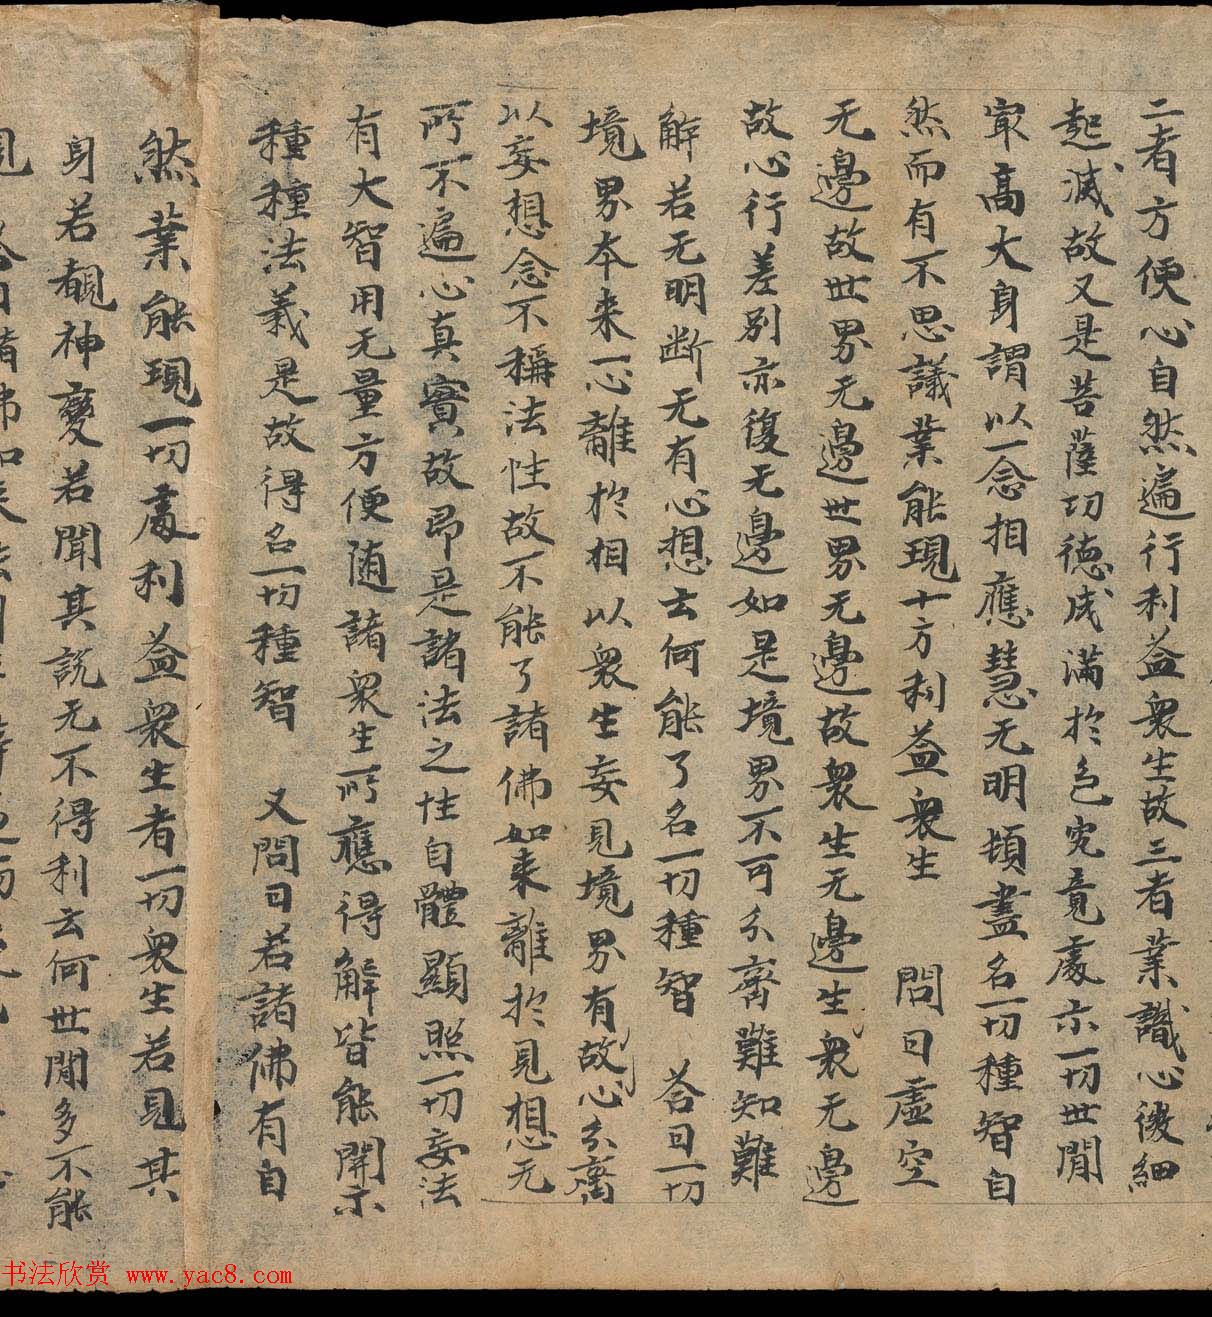 二者方便心自然遍行利益衆生故三者業識心微細
起滅故又是菩薩功德成滿於色究竟處示一切世間
冣高大身謂以一念相應慧无明頓盡名一切種智自
然而有不思議業能現十方利益衆生 問曰虛空
无邊故世界无邊世界无邊故衆生无邊生衆无邊
故心行差別亦復无邊如是境界不可分齊難知難
解若无明断无有心想云何能了名一切種智 荅曰一切
境界夲来一心離於相以衆生妄見境界有故心分齊
以妄想念不稱法性故不能了諸佛如来離於見想无
所不遍心真實故即是諸法之性自體顯照一切妄法
有大智用无量方便随諸衆生所應得解皆能開示
種種法義是故得名一切種智 又問曰若諸佛有自
然業能現一切處利益衆生者一切衆生若見其
身若覩神變若聞其說无不得利云何世間多不能
見 荅曰諸佛如来法
书法欣赏 www.yac8.com